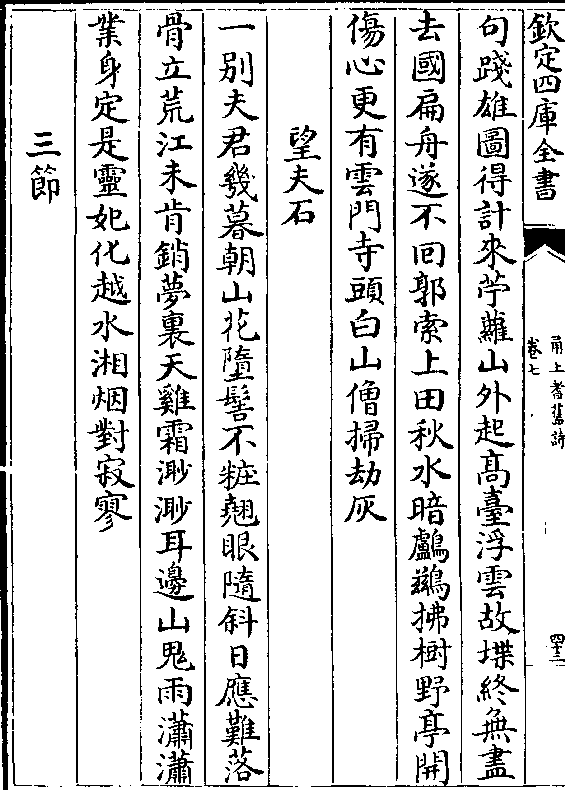 欽定四庫全書
甬上耆舊詩
卷七
四十三
句踐雄圖得計來苧蘿山外起高臺浮雲故堞終無盡
去國扁舟遂不回郭索上田秋水暗鸕鷀拂樹野亭開
傷心更有雲門寺頭白山僧掃劫灰
望夫石
一别夫君幾暮朝山花墮髻不粧翹眼隨斜日應難落
骨立荒江未肯銷夢裏天雞霜渺渺耳邊山鬼雨瀟瀟
業身定是靈妃化越水湘烟對寂寥
三節